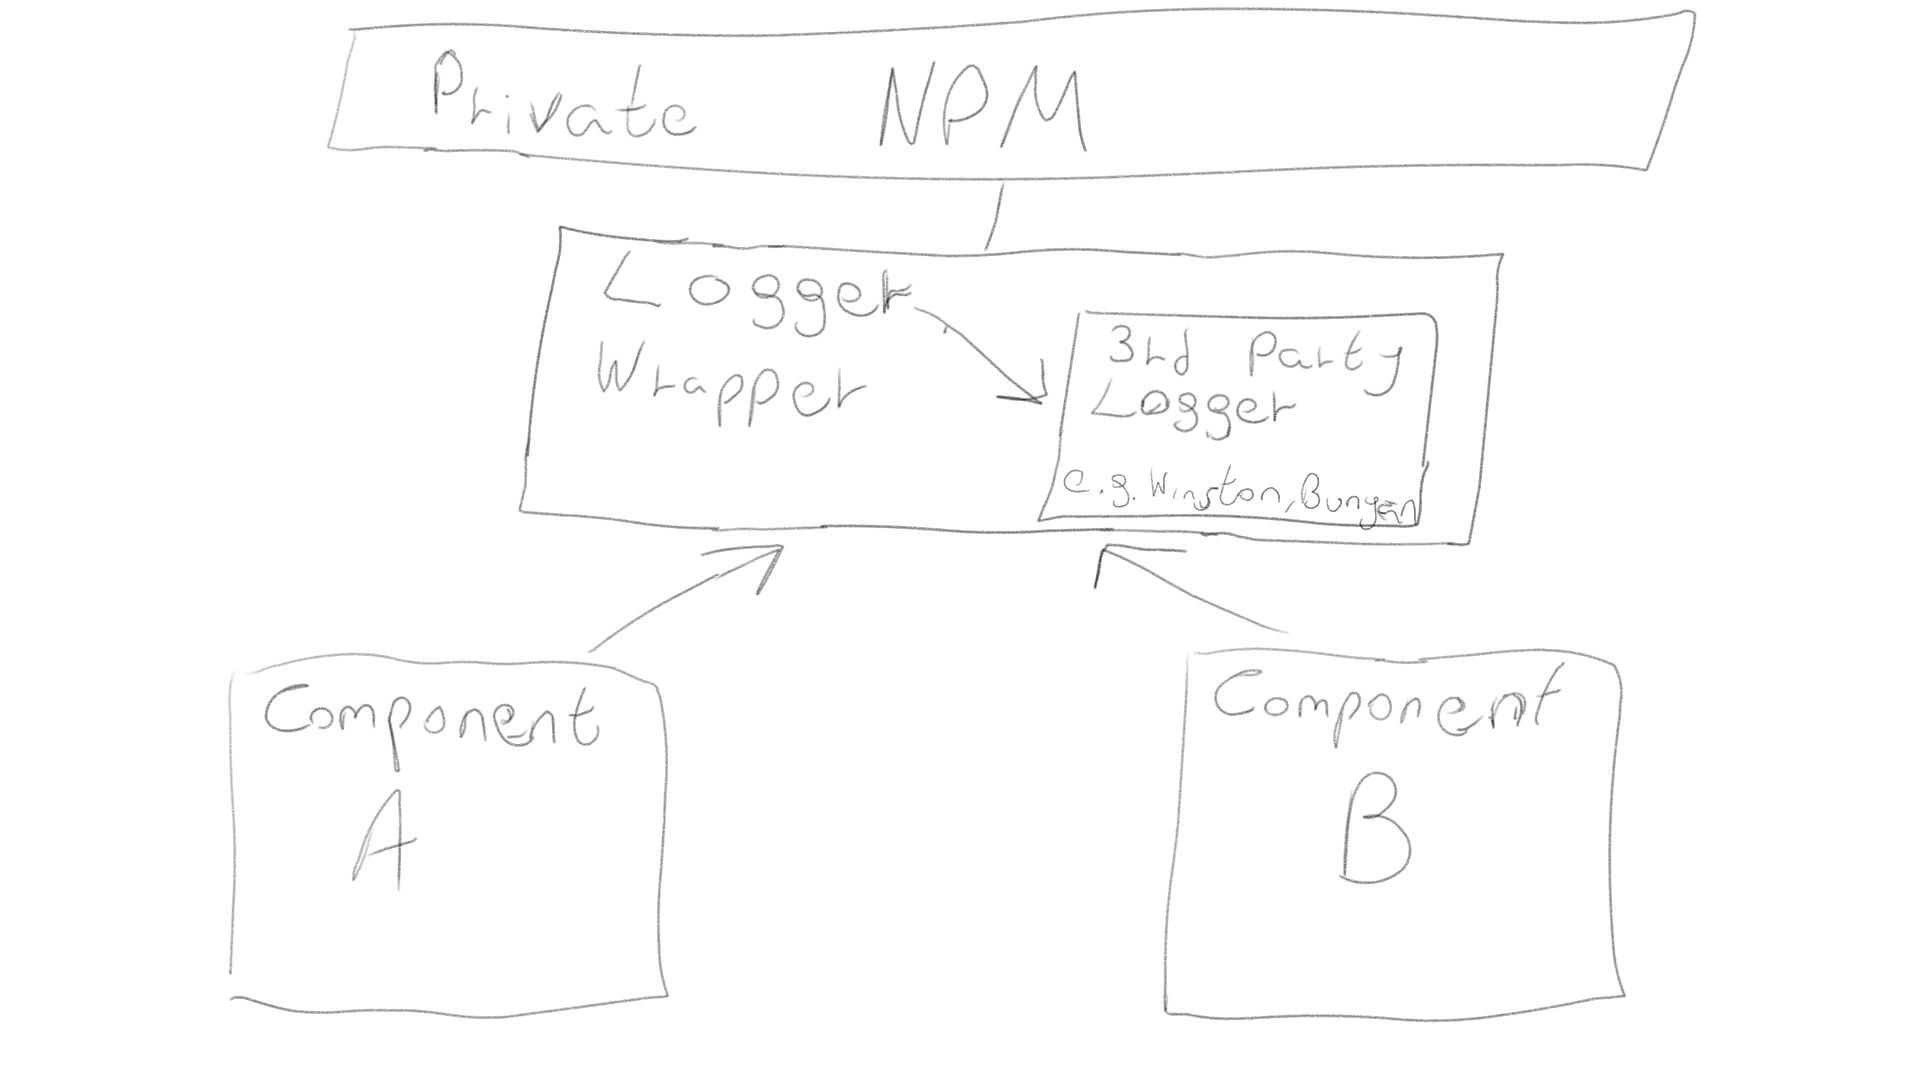 Private NPM
Logger
Wrapper
3rd Party
Logger
e.g. Winston, Bunyan
Component
A
Component
B